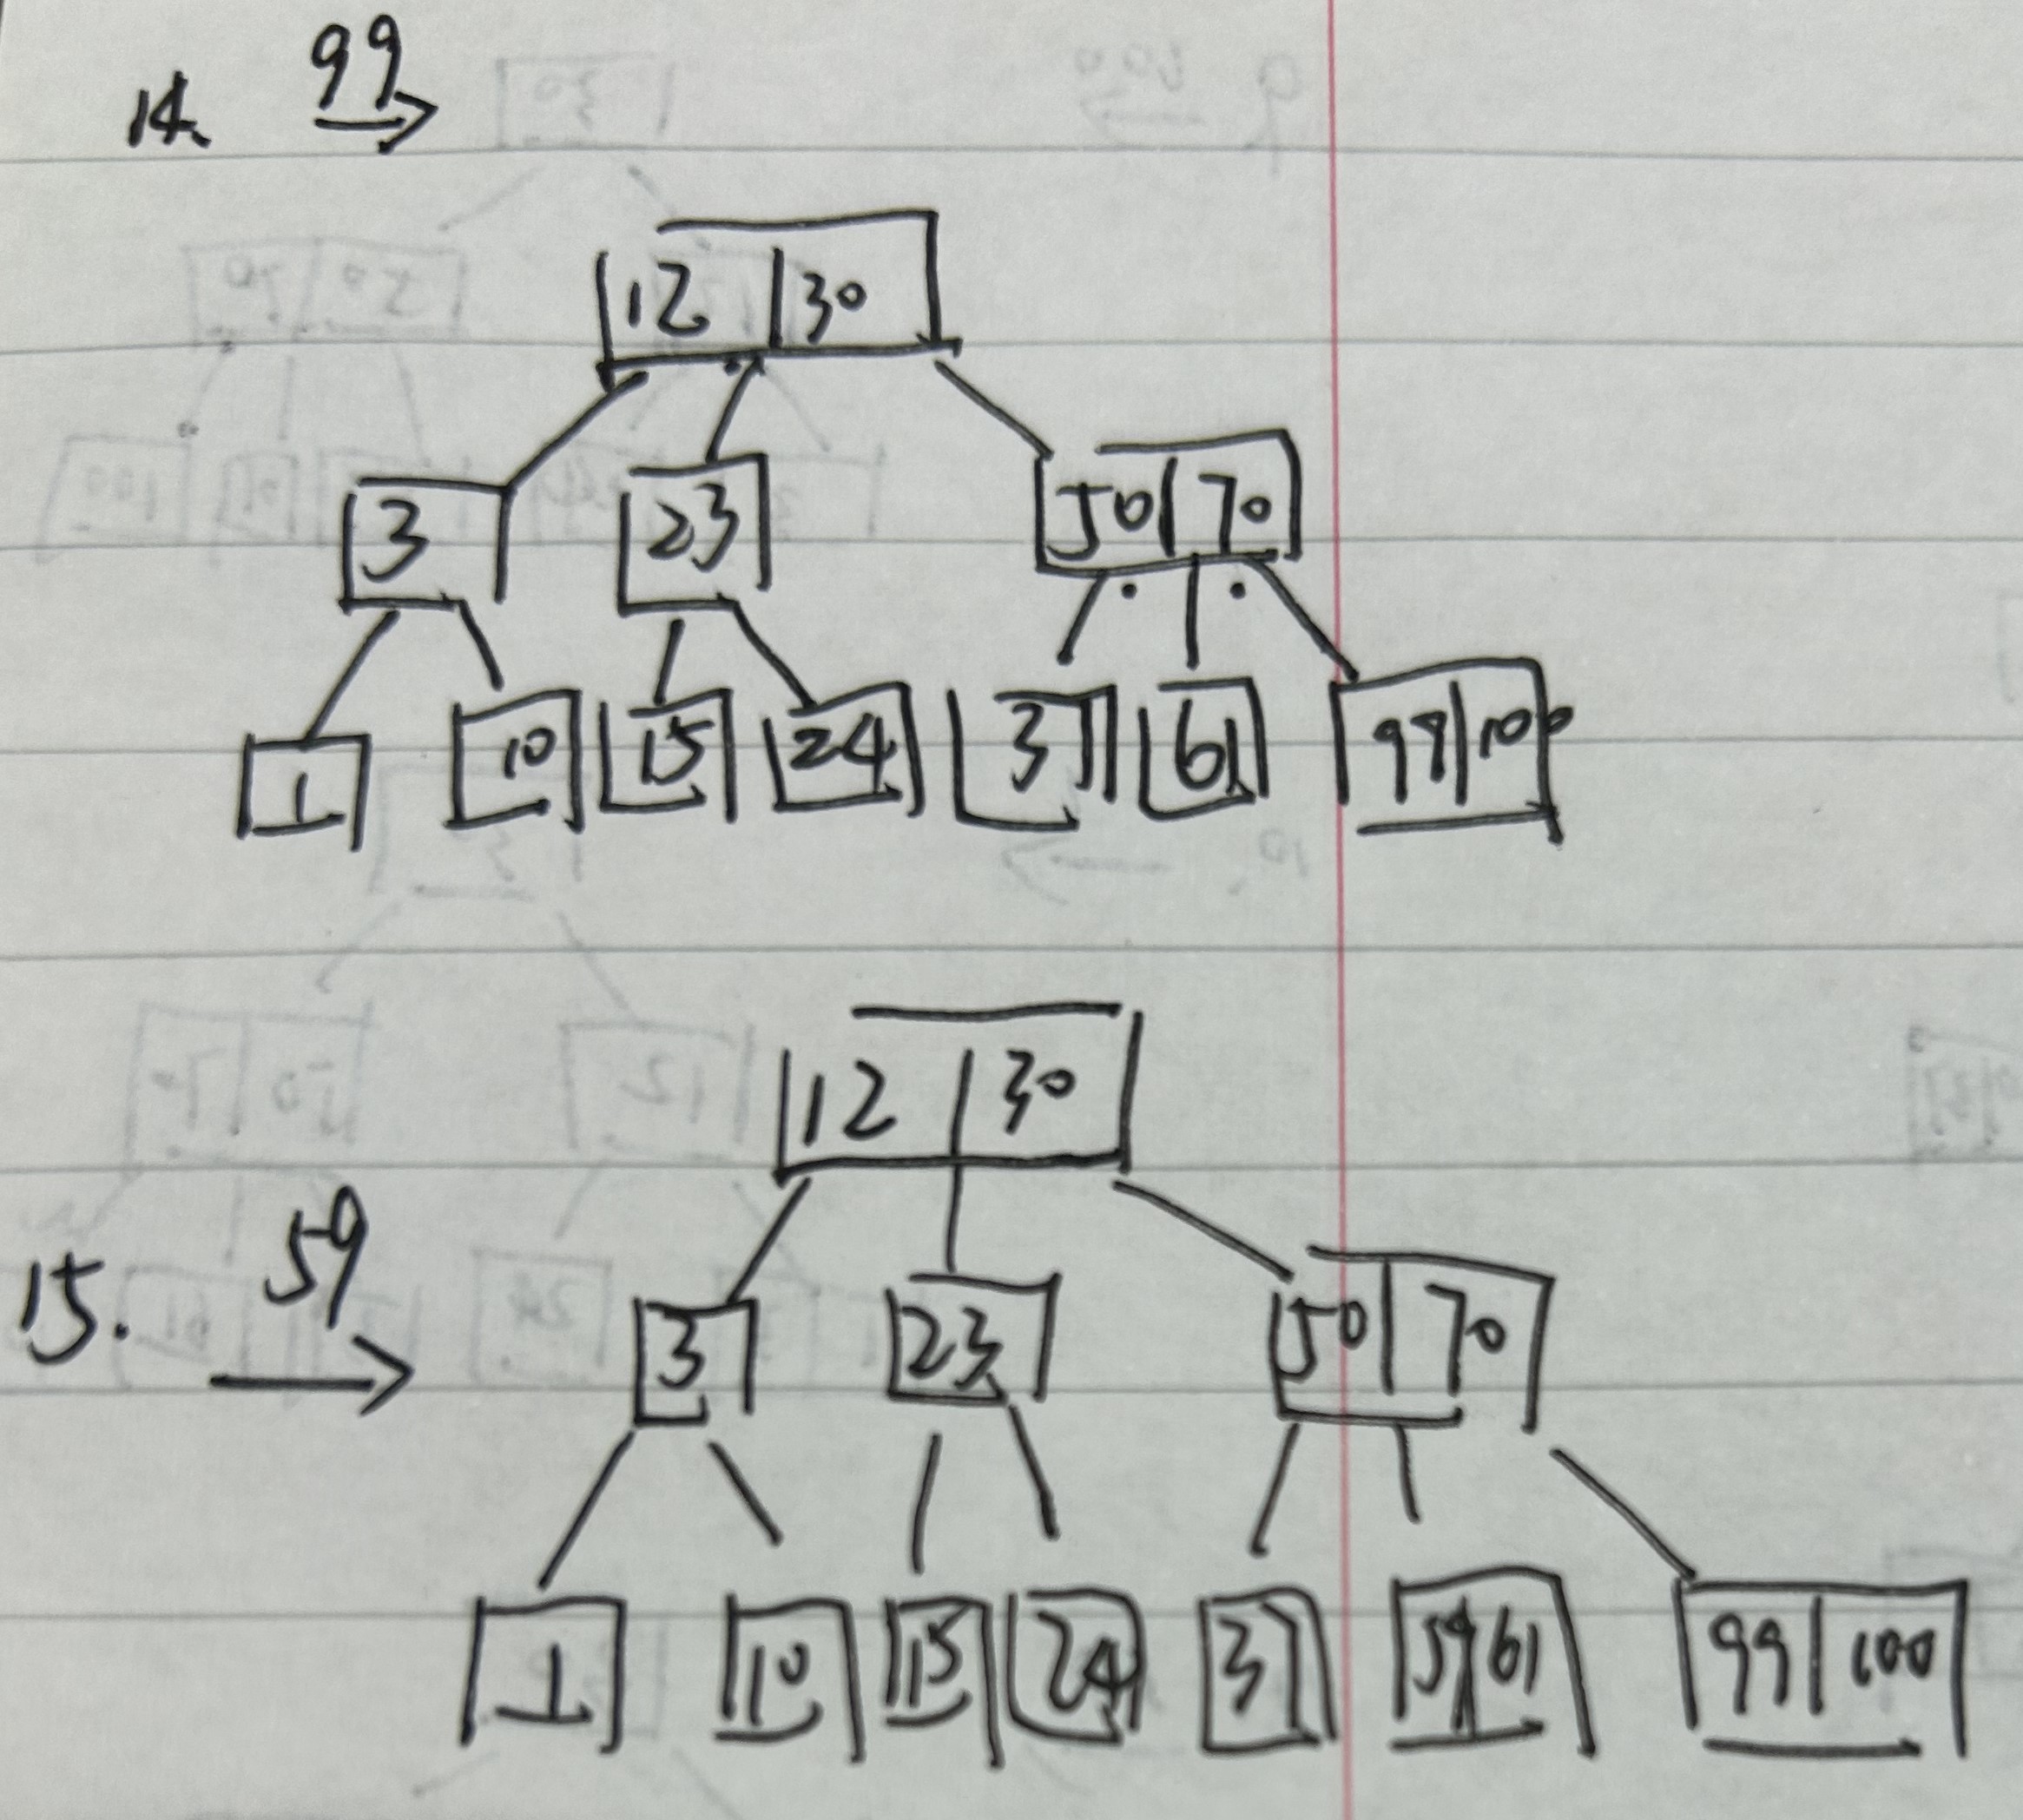 14. 99
12 30
3 23 50 70
1 10 15 24 37 61 99 100
12 30
15. 59
3 23 50 70
1 10 15 24 37 59 61 99 100